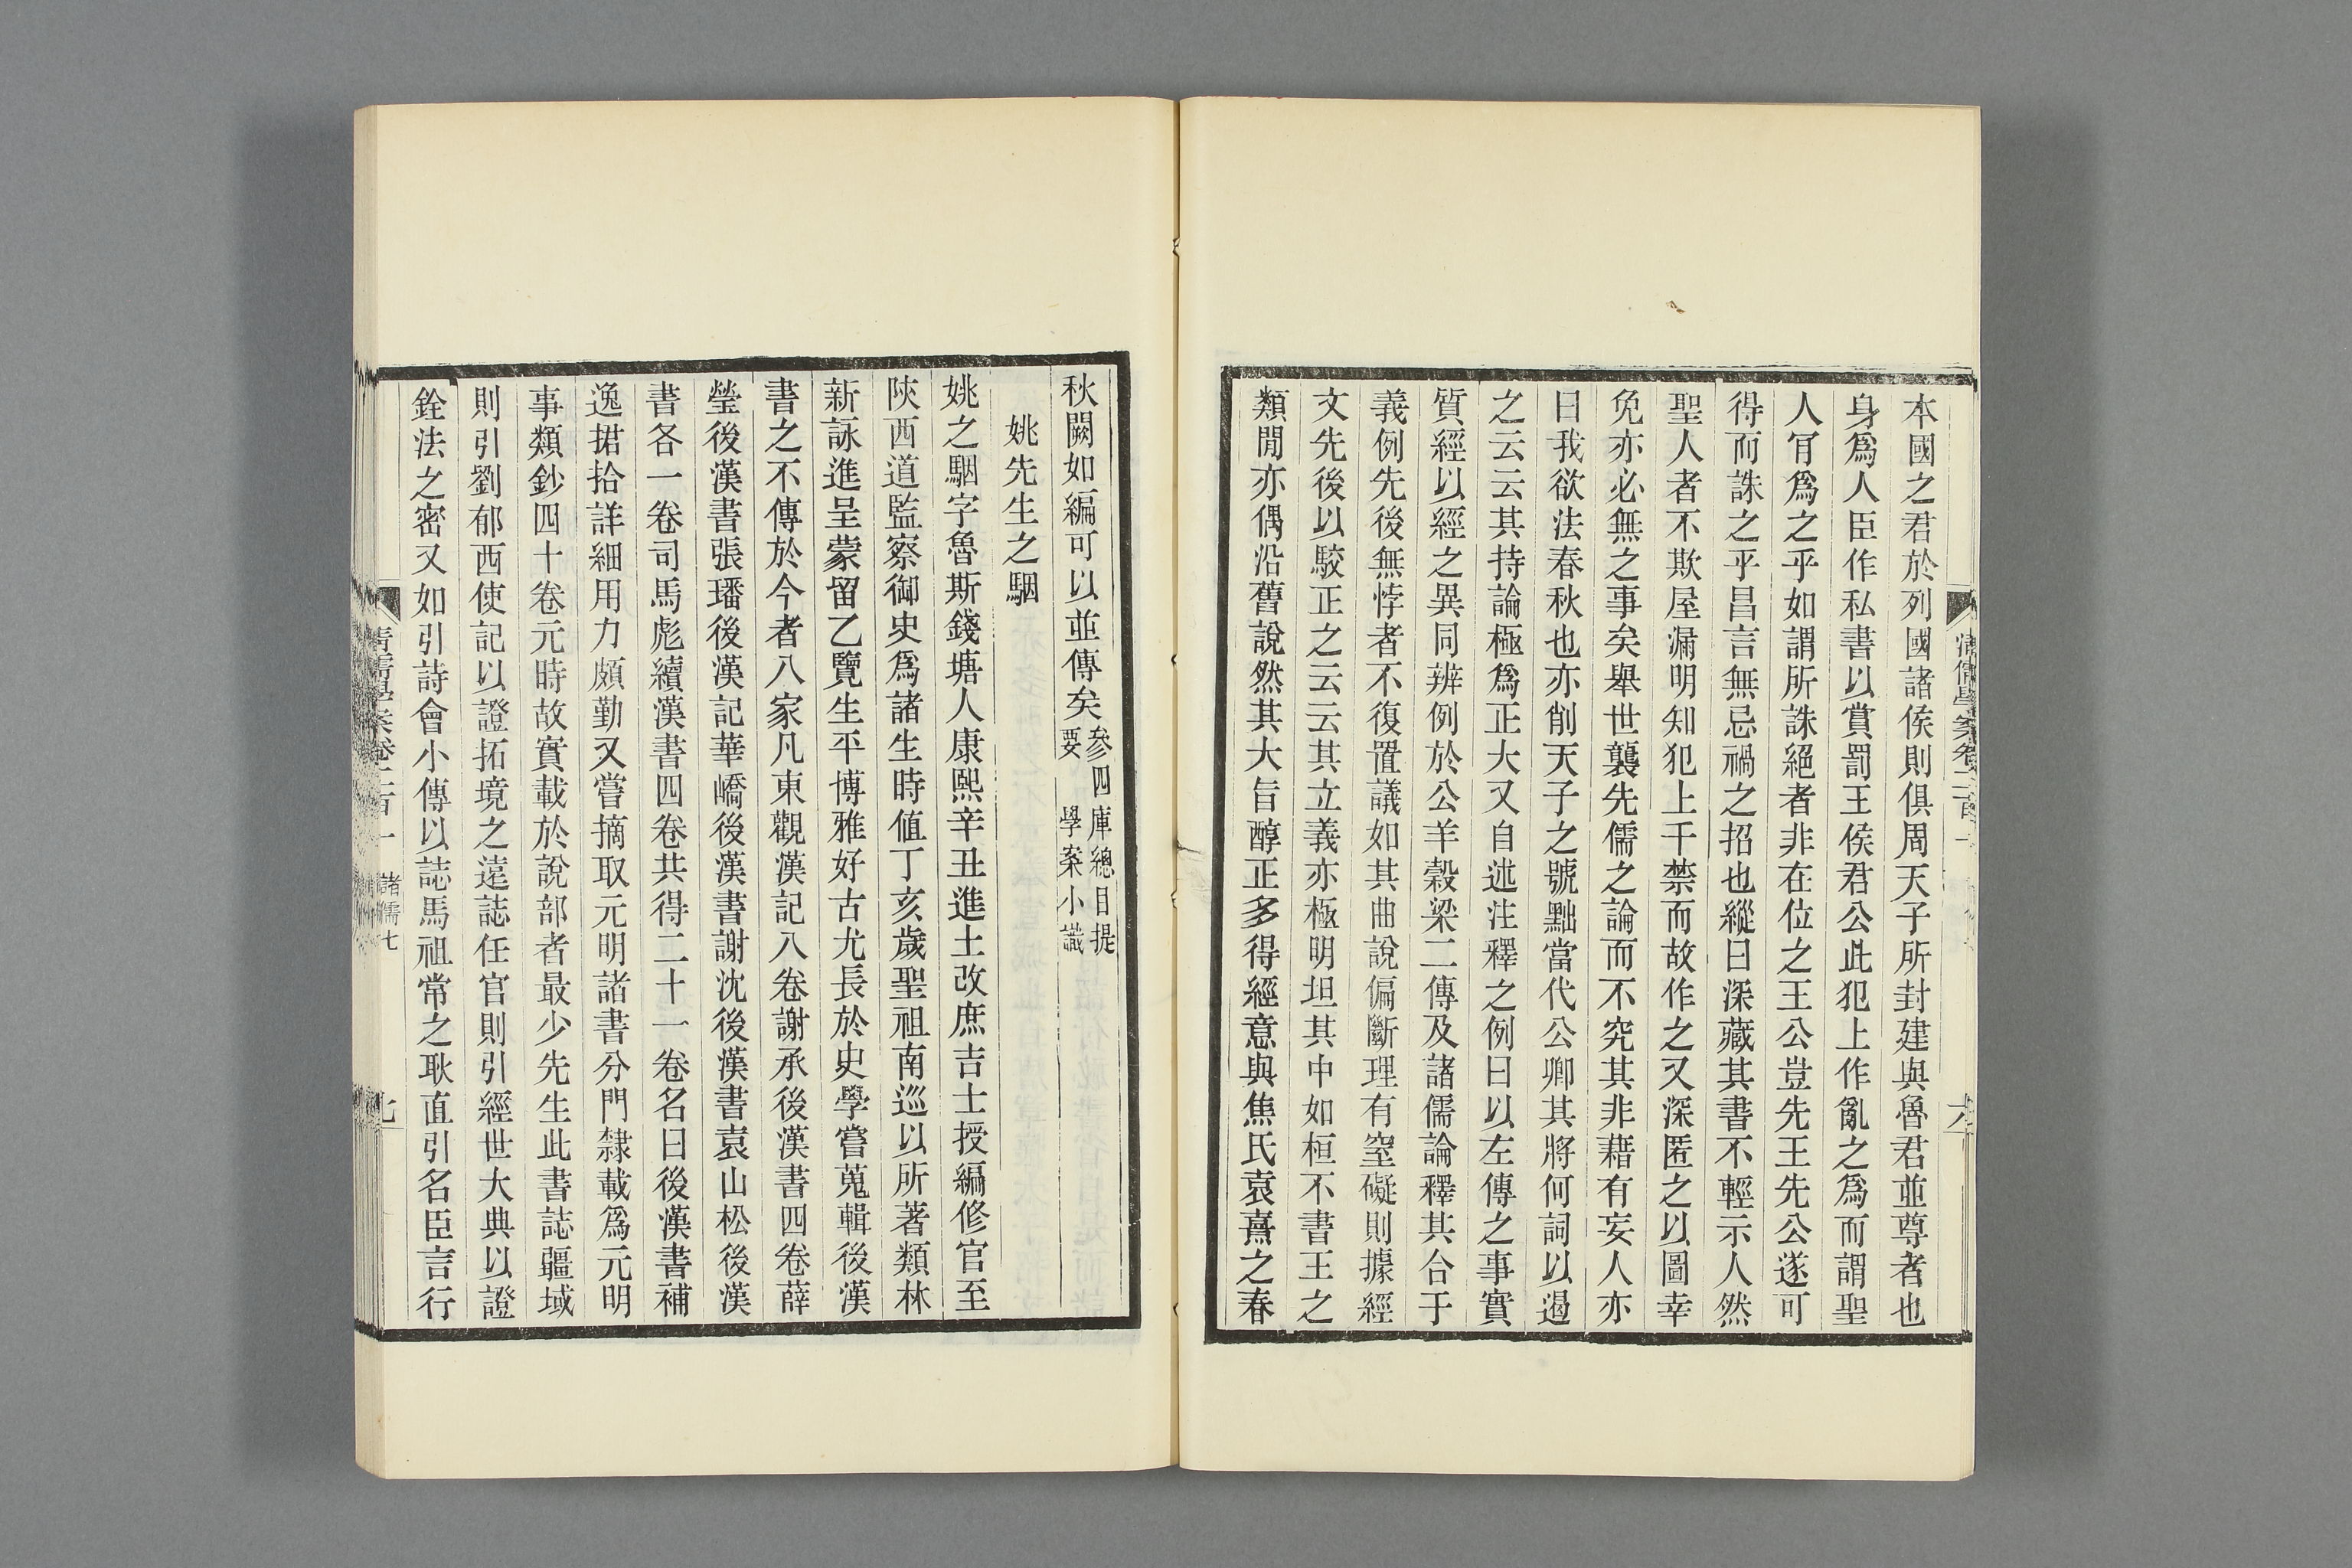 本國之君於列國諸侯則俱周天子所封建與魯君並尊者也
身爲人臣作私書以賞罰王侯君公此犯上作亂之爲而謂聖
人肯爲之乎如謂所誅絕者非在位之王公豈先王先公遂可
得而誅之乎昌言無忌禍之招也縱曰深藏其書不輕示人然
聖人者不欺屋漏明知犯上干禁而故作之又深匿之以圖幸
免亦必無之事矣舉世襲先儒之論而不究其非藉有妄人亦
曰我欲法春秋也亦削天子之號黜當代公卿其將何詞以遏
之云云其持論極爲正大又自述注釋之例曰以左傳之事實
質經以經之異同辨例於公羊穀梁二傳及諸儒論釋其合于
義例先後無悖者不復置議如其曲說偏斷理有窒礙則據經
文先後以駮正之云云其立義亦極明坦其中如桓不書王之
類閒亦偶沿舊說然其大旨醇正多得經意與焦氏袁熹之春
秋闕如編可以並傳矣參四庫總目提要 學案小識
姚先生之駰
姚之駰字魯斯錢塘人康熙辛丑進士改庶吉士授編修官至
陜西道監察御史爲諸生時値丁亥歲聖祖南巡以所著類林
新詠進呈蒙留乙覽生平博雅好古尤長於史學嘗蒐輯後漢
書之不傳於今者八家凡東觀漢記八卷謝承後漢書四卷薛
瑩後漢書張璠後漢記華嶠後漢書謝沈後漢書袁山松後漢
書各一卷司馬彪續漢書四卷共得二十一卷名曰後漢書補
逸捃拾詳細用力頗勤又嘗摘取元明諸書分門隸載爲元明
事類鈔四十卷元時故實載於說部者最少先生此書誌疆域
則引劉郁西使記以證拓境之遠誌任官則引經世大典以證
銓法之密又如引詩會小傳以誌馬祖常之耿直引名臣言行
清儒學案卷二百一 諸儒七
七